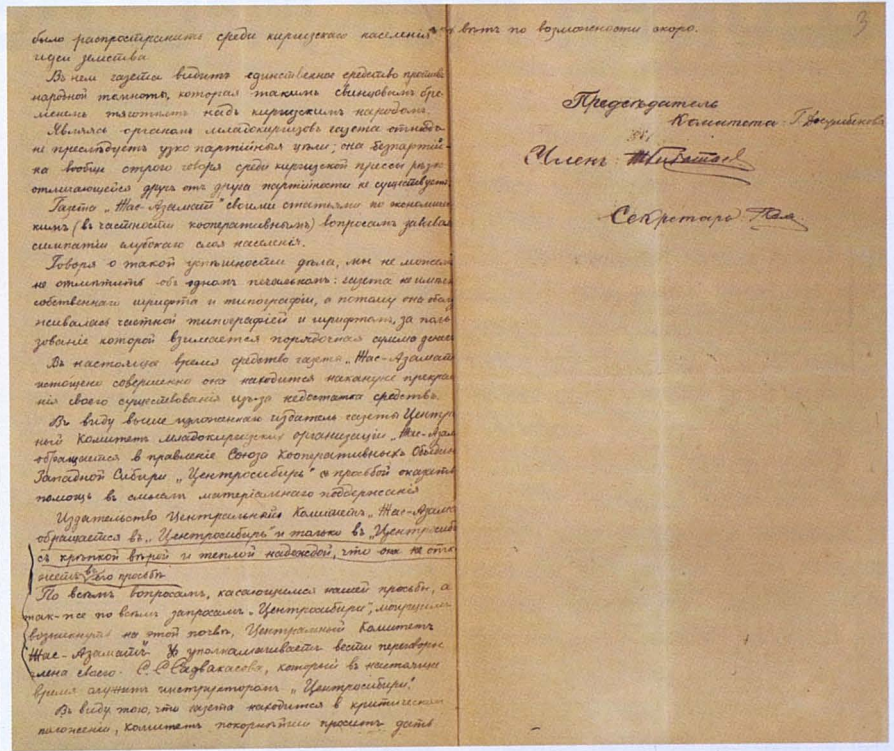 было распространить среди киргизскаго населенiя
идеи земства.
Въ нем газета видитъ единственное средство против
народной темноты, которая такимъ свинцовымъ бре-
менемъ тяготѣетъ надъ киргизскимъ народомъ.
Являясь органомъ младокиргизовъ газета отнюдь
не преслѣдуетъ узко партiйныя цѣли; она безпартiй-
на вообще строго говоря среди киргизской прессы рѣзко
отличающейся другъ отъ друга партiйности не существуетъ.
Газета „Жас-Азаматъ" своими статьями по экономиче
кимъ (въ частности кооперативнымъ) вопросамъ завоевал
симпатiи глубокаго слоя населенiя.
Говоря о такой успѣшности дѣла, мы не можемъ
не отмѣтить объ одномъ печальномъ: газета не имѣетъ
собственнаго шрифта и типографiи, а потому она обслу
живалась частной типографiей и шрифтомъ, за поль
зованiе которой взимается порядочная сумма денегъ
Въ настоящее время средство газеты „Жас-Азаматъ
истощено совершенно она находится накануне прекра
нiя своего существованiя изъ-за недостатка средствъ.
Въ виду выше изложеннаго издатель газеты Центра
ный Комитетъ младокиргизских организацiи „Жас-Азам
обращается в правленiе Союза Кооперативныхъ Объедин
Западной Сибири „Центросибирь" съ просьбой оказать
помощь въ смыслѣ матерiальнаго поддержанiя
Издательство Центральный Комитетъ „Жас-Азама
обращается въ „Центросибирь" и только въ „Центросиби
съ крѣпкой вѣрой и теплой надеждой, что она не отка
жетъ въ его просьбѣ.
По всѣмъ вопросамъ, касающемся нашей просьбы, а
так-же по всѣмъ запросамъ „Центросибири", могущимъ
возникнуть на этой почвѣ, Центральный Комитетъ
„Жас-Азаматъ" уполномачиваетъ вести переговоры
члена своего С. Садвакасова, который въ настоящее
время служитъ инструкторомъ „Центросибири".
Въ виду того, что газета находится в критическом
положенiи, Комитетъ покорнѣйше проситъ дать
вѣтъ по возможности скоро.
3
Председатель
Комитета
Членъ
Секретарь